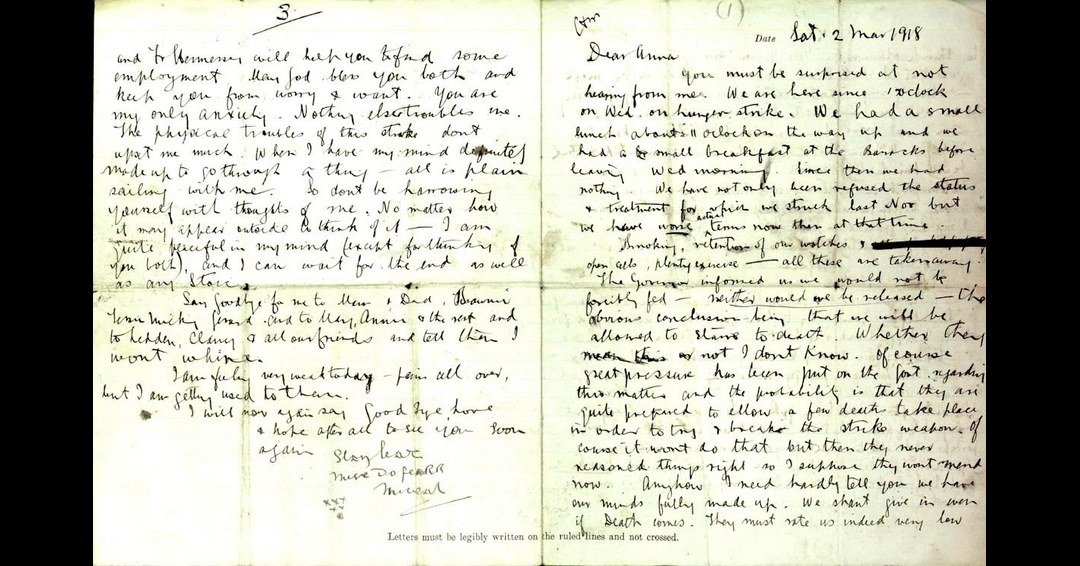 3
and Fr Hennessy will help you to find some
employment. May God bless you both and
keep you from worry & want. You are
my only anxiety. Nothing else troubles me.
The physical troubles of this strike don't
upset me much. When I have my mind definitely
made up to go through a thing – all is plain
sailing with me. So don't be harrowing
yourself with thoughts of me. No matter how
it may appear outside to think of it – I am
quite peaceful in my mind (except for thinking of
you both), and I can wait for the end as well
as any Stoic.
Say Goodbye for me to Mam & Dad, Brownie
Micky Gerard. And to Mary, Annie & the rest and
to , Clancy & all our friends and tell them I
wont whine.
I am feeling very weak today – pains all over,
but I am getting used to them.
I will now again say Good bye, love
& hope after all to see you soon
again
Slán leat
Mise Do fear
Miceal
xxx
xx
(1)
Date Sat. 2 Mar 1918
Dear Anna
You must be surprised at not
hearing from me. We are here since 1 o'clock
on Wed. on hunger strike. We had a small
lunch about 11 oclock on the way up and we
had a small breakfast at the Barracks before
leaving Wed morning. Since then we had
nothing. We have not only been refused the status
& treatment for which we struck last Nov but
we have worse actual terms now than at that time.
Smoking, retention of our watches &
open cells, plenty exercise – all these are taken away.
The Governor informed us we would not be
forcibly fed – neither would we be released – the
obvious conclusion being that we will be
allowed to starve to death. Whether they
mean this or not I don't know. Of course
great pressure has been put on the Govt. regarding
this matter and the probability is that they are
quite prepared to allow a few deaths take place
in order to try & break the strike weapon. Of
course it wont do that but then they never
reasoned things right so I suppose they wont mend
now. Anyhow I need hardly tell you we have
our minds fully made up. We shant give in even
if Death comes. They must rate us indeed very low
Letters must be legibly written on the ruled lines and not crossed.